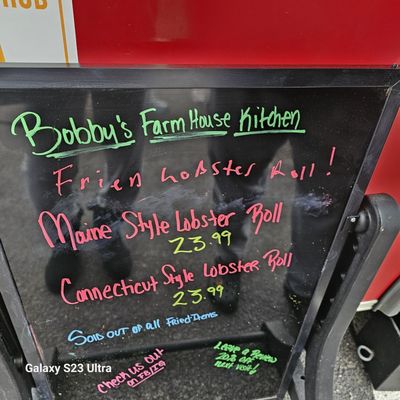 Bobby's Farm House Kitchen
Frien Lobster Roll!
Maine Style Lobster Roll
23.99
Connecticut Style Lobster Roll
23.99
Sold out of all Fried Items
Check us out
on FB/IG
Leave a Review
20% off
next visit!
Galaxy S23 Ultra